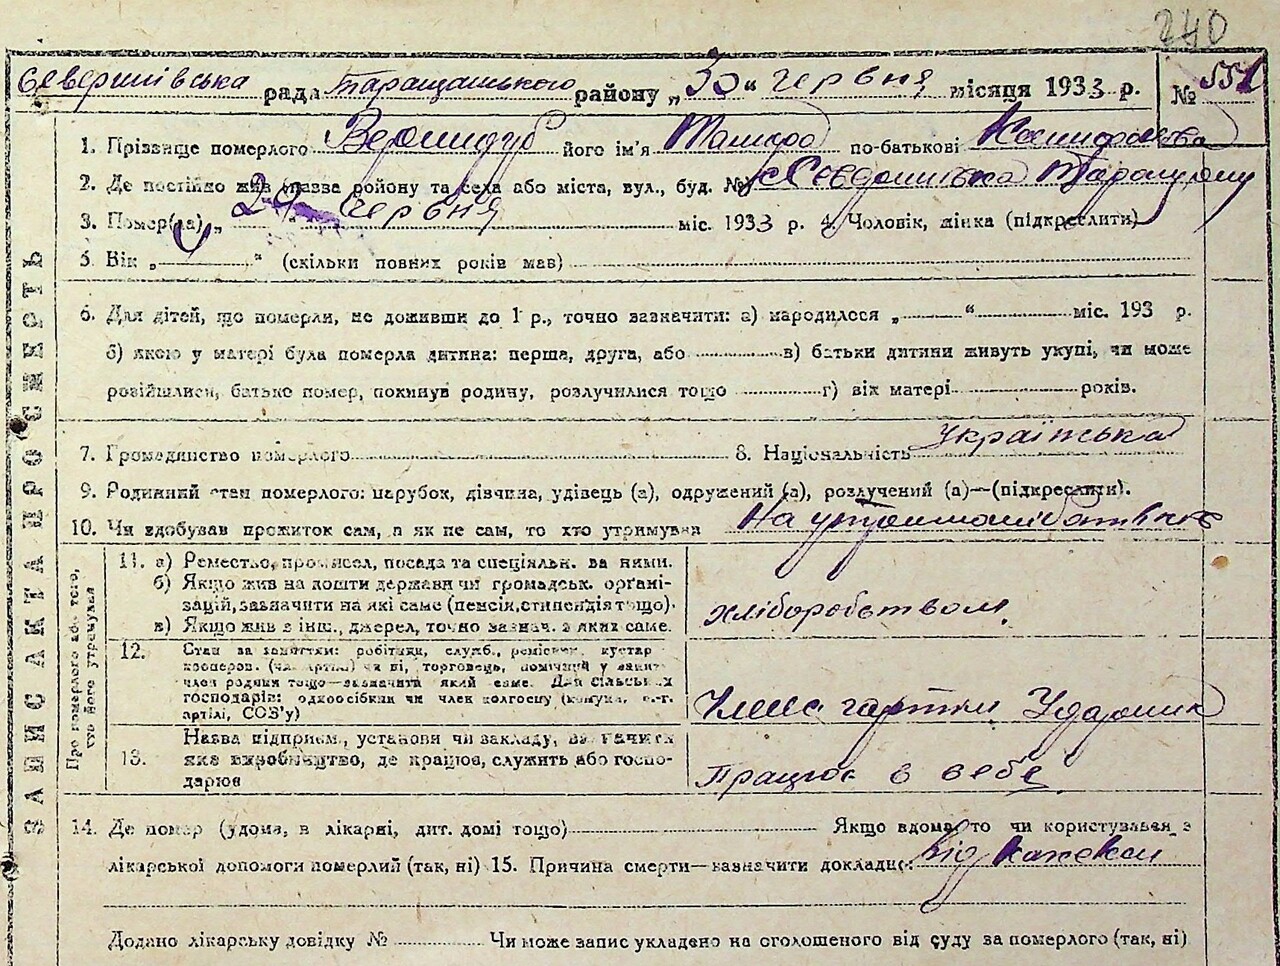 240
рада Таращанського району „30“ червня місяця 1933 р. №
1. Прізвище померлого Вернидуб його ім'я по-батькові
2. Де постійно жив (назва району та села або міста, вул., буд. №
3. Помер(ла) „29“ червня міс. 1933 р. 4. Чоловік, жінка (підкреслити)
5. Вік „4“ (скільки повних років мав)
6. Для дітей, що померли, не доживши до 1 р., точно зазначити: а) народилося „ “ міс. 193 р.
б) якою у матері була померла дитина: перша, друга, або в) батьки дитини живуть укупі, чи може
розійшлися, батько помер, покинув родину, розлучилися тощо г) вік матері років.
7. Громадянство померлого 8. Національність українська
9. Родинний стан померлого: парубок, дівчина, удівець (а), одружений (а), розлучений (а)—(підкреслити).
10. Чи здобував прожиток сам, а як не сам, то хто утримував На утриманні батьків
ЗАПИС АКТА ПРО СМЕРТЬ
Про померлого або того, хто його утримував
11. а) Ремество, промисел, посада та спеціяльн. за ними.
б) Якщо жив на кошти держави чи громадськ. орґані-
зацій, зазначити на які саме (пенсія, стипендія тощо).
в) Якщо жив з інш., джерел, точно зазнач. з яких саме.
хліборобством
12. Стан за заняттям: робітник, служб., ремісник, кустар
кооперов. (чл. артілі) чи ні, торговець, помічний у занят.
член родини тощо—зазначити який саме. Для сільських
господарів: одноосібник чи член колгоспу (комуна, с.-г.
артілі, СОЗ'у)
Член артіли Ударник
13. Назва підприєм., установи чи закладу, зазначити
яке виробництво, де працює, служить або госпо-
дарює
Працює в себе
14. Де помер (удома, в лікарні, дит. домі тощо) Якщо вдома, то чи користувався з
лікарської допомоги померлий (так, ні) 15. Причина смерти—зазначити докладно: Від
Додано лікарську довідку № Чи може запис укладено на оголошеного від суду за померлого (так, ні)